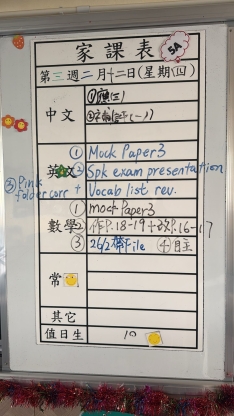 家課表
5A
第三週二月十二日(星期四)
中文
①
②
英文
① Mock Paper 3
② Spk exam presentation
③ Pink folder corr + Vocab list rev.
數學
① mock Paper 3
② P.18-19+改P.16-17
③ 26/2 帶File ④自主
常
其它
值日生
10